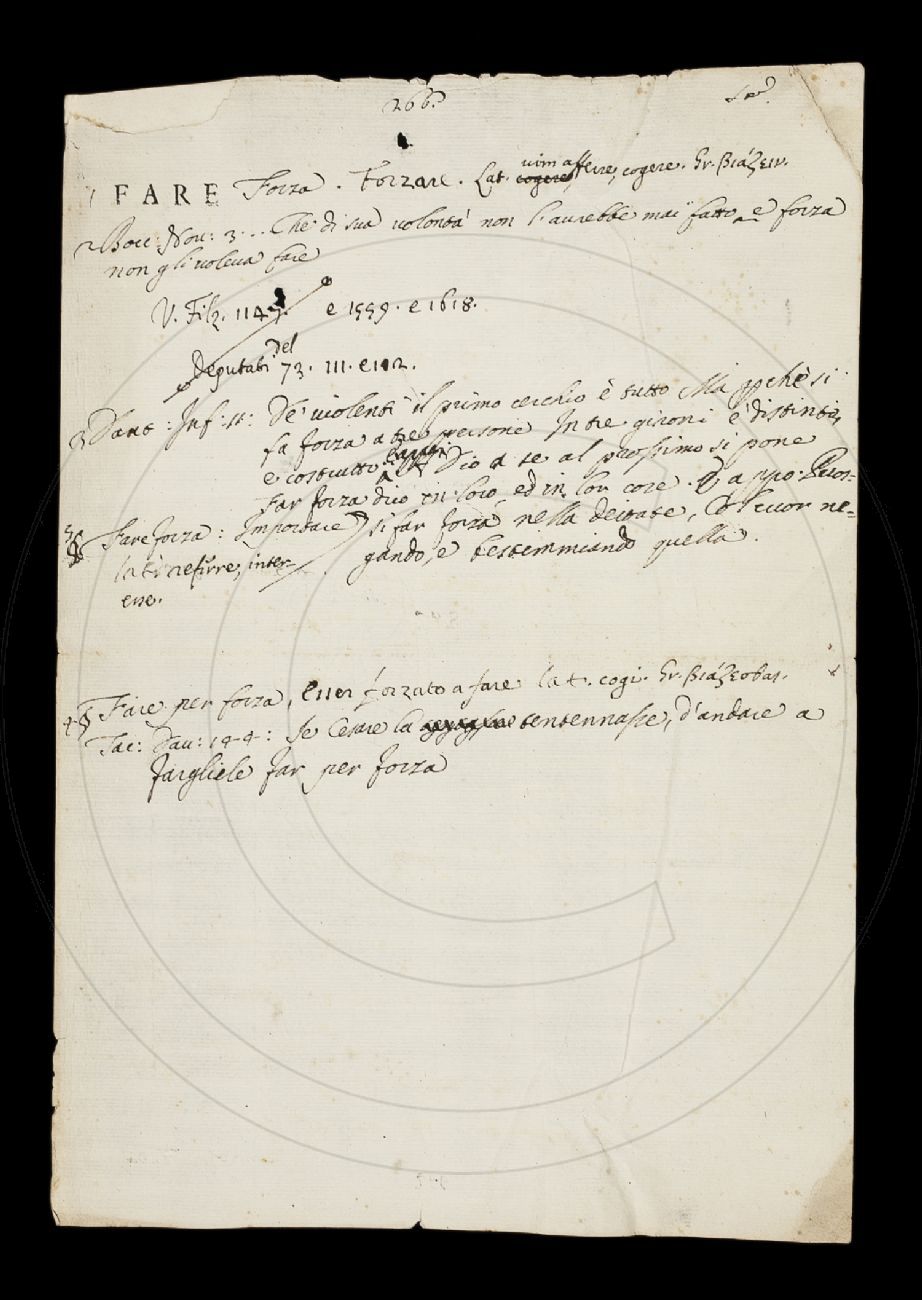 266.
1 FARE Forza. Forzare. Lat. cogere, vim afferre, cogere. Gr. βιάζειν.
2 Bocc: Nov: 3... Che di sua volontà non l'avrebbe mai fatto e forza
non gli voleva fare
V. Filz. 1147. e 1559. e 1618.
Deputati del 73. 111. e 112.
3 Dant: Inf: 11: De' violenti il primo cerchio è tutto Ma pchè si
fa forza a tre persone In tre gironi è distinto,
e costrutto A Dio a se al prossimo si pone
Far forza dico in loro ed in lor cose. E appo:
si far forza nella deitate, Col cuor ne=
gando, e bestemmiando quella.
§ Fare forza: Importare
lat. referre, inter-
esse.
4 § Fare per forza, esser forzato a fare lat. cogi. Gr. βιάζεσθαι.
Tac: Dav: 144: Se Cesare la tentennasse, d'andare a
fargliele far per forza